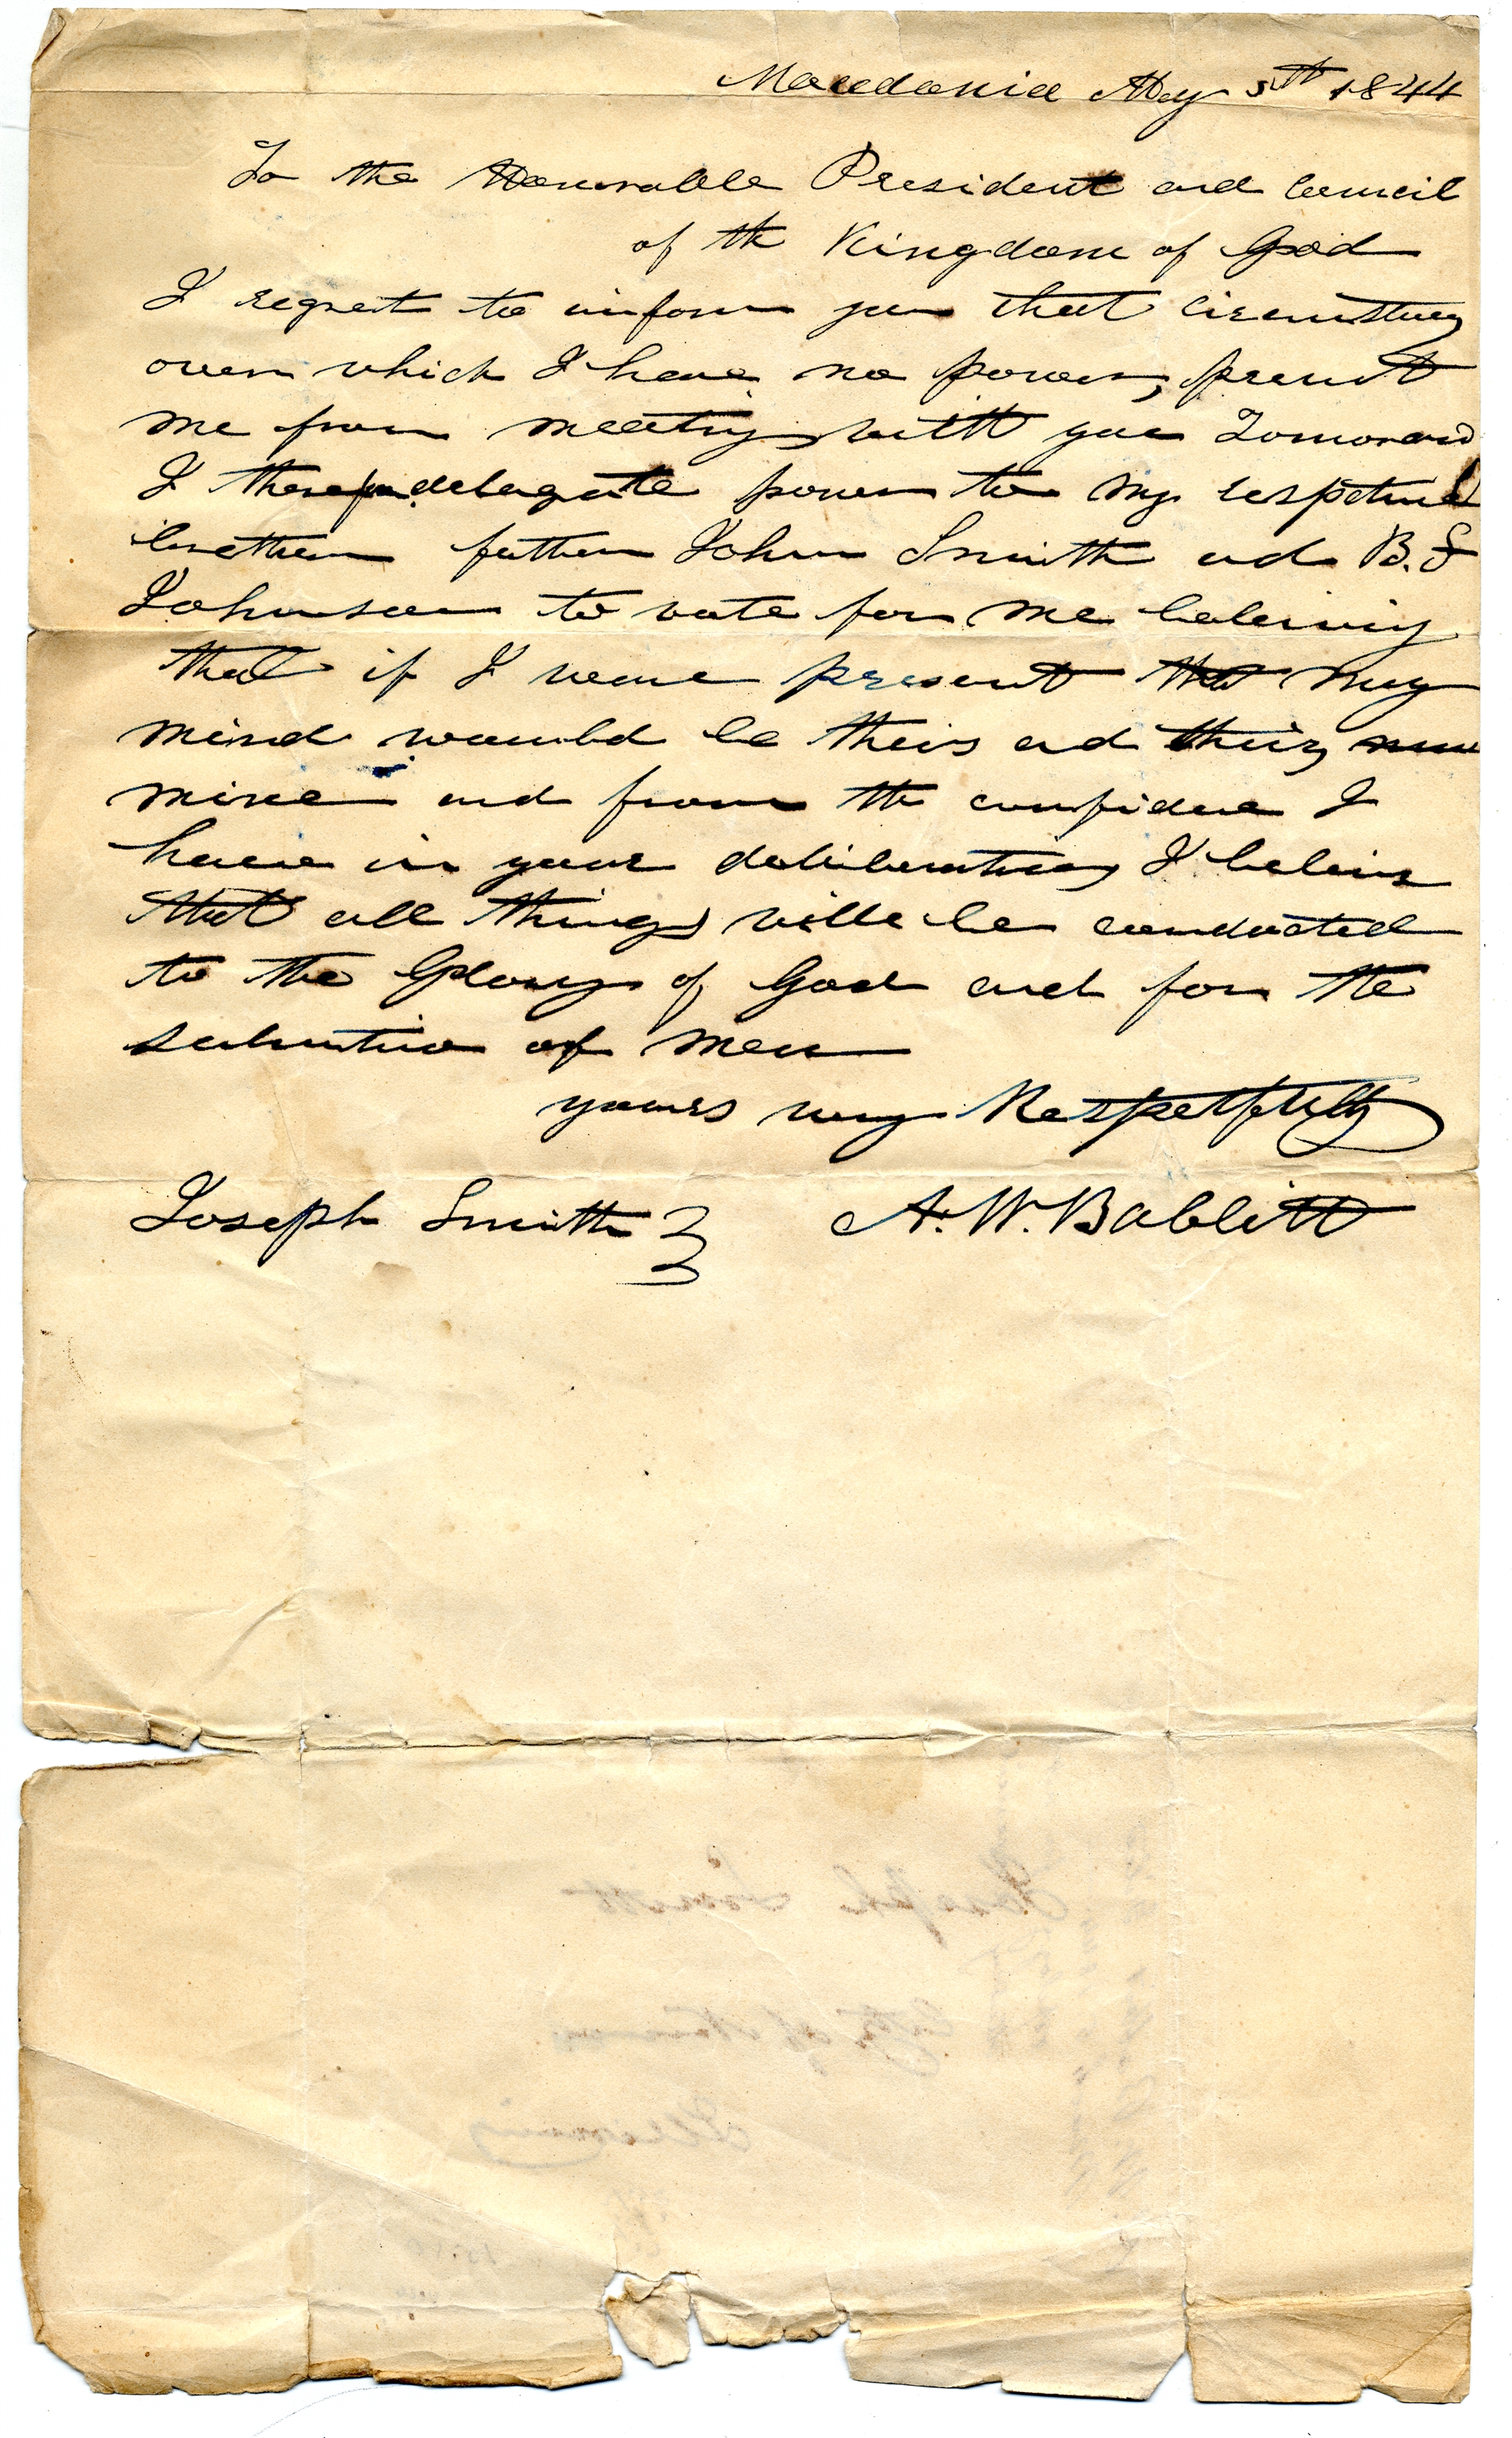 Macedonia May 5th 1844
To the Honorable President and Council
of the Kingdom of God
I regret to inform you that circumstances
over which I have no power, prevent
me from meeting with you Tomorrow
I therefor delegate power to my respected
brethren father John Smith and B. F
Johnson to vote for me beleiving
that if I were present that my
mind would be theirs and theirs
mine and from the confidence I
have in your deliberations I beleive
that all things will be conducted
to the Glory of God and for the
salvation of men
yours very Respetfully
Joseph Smith } A. W. Babbitt
Joseph Smith
City of Nauvoo
Illinois